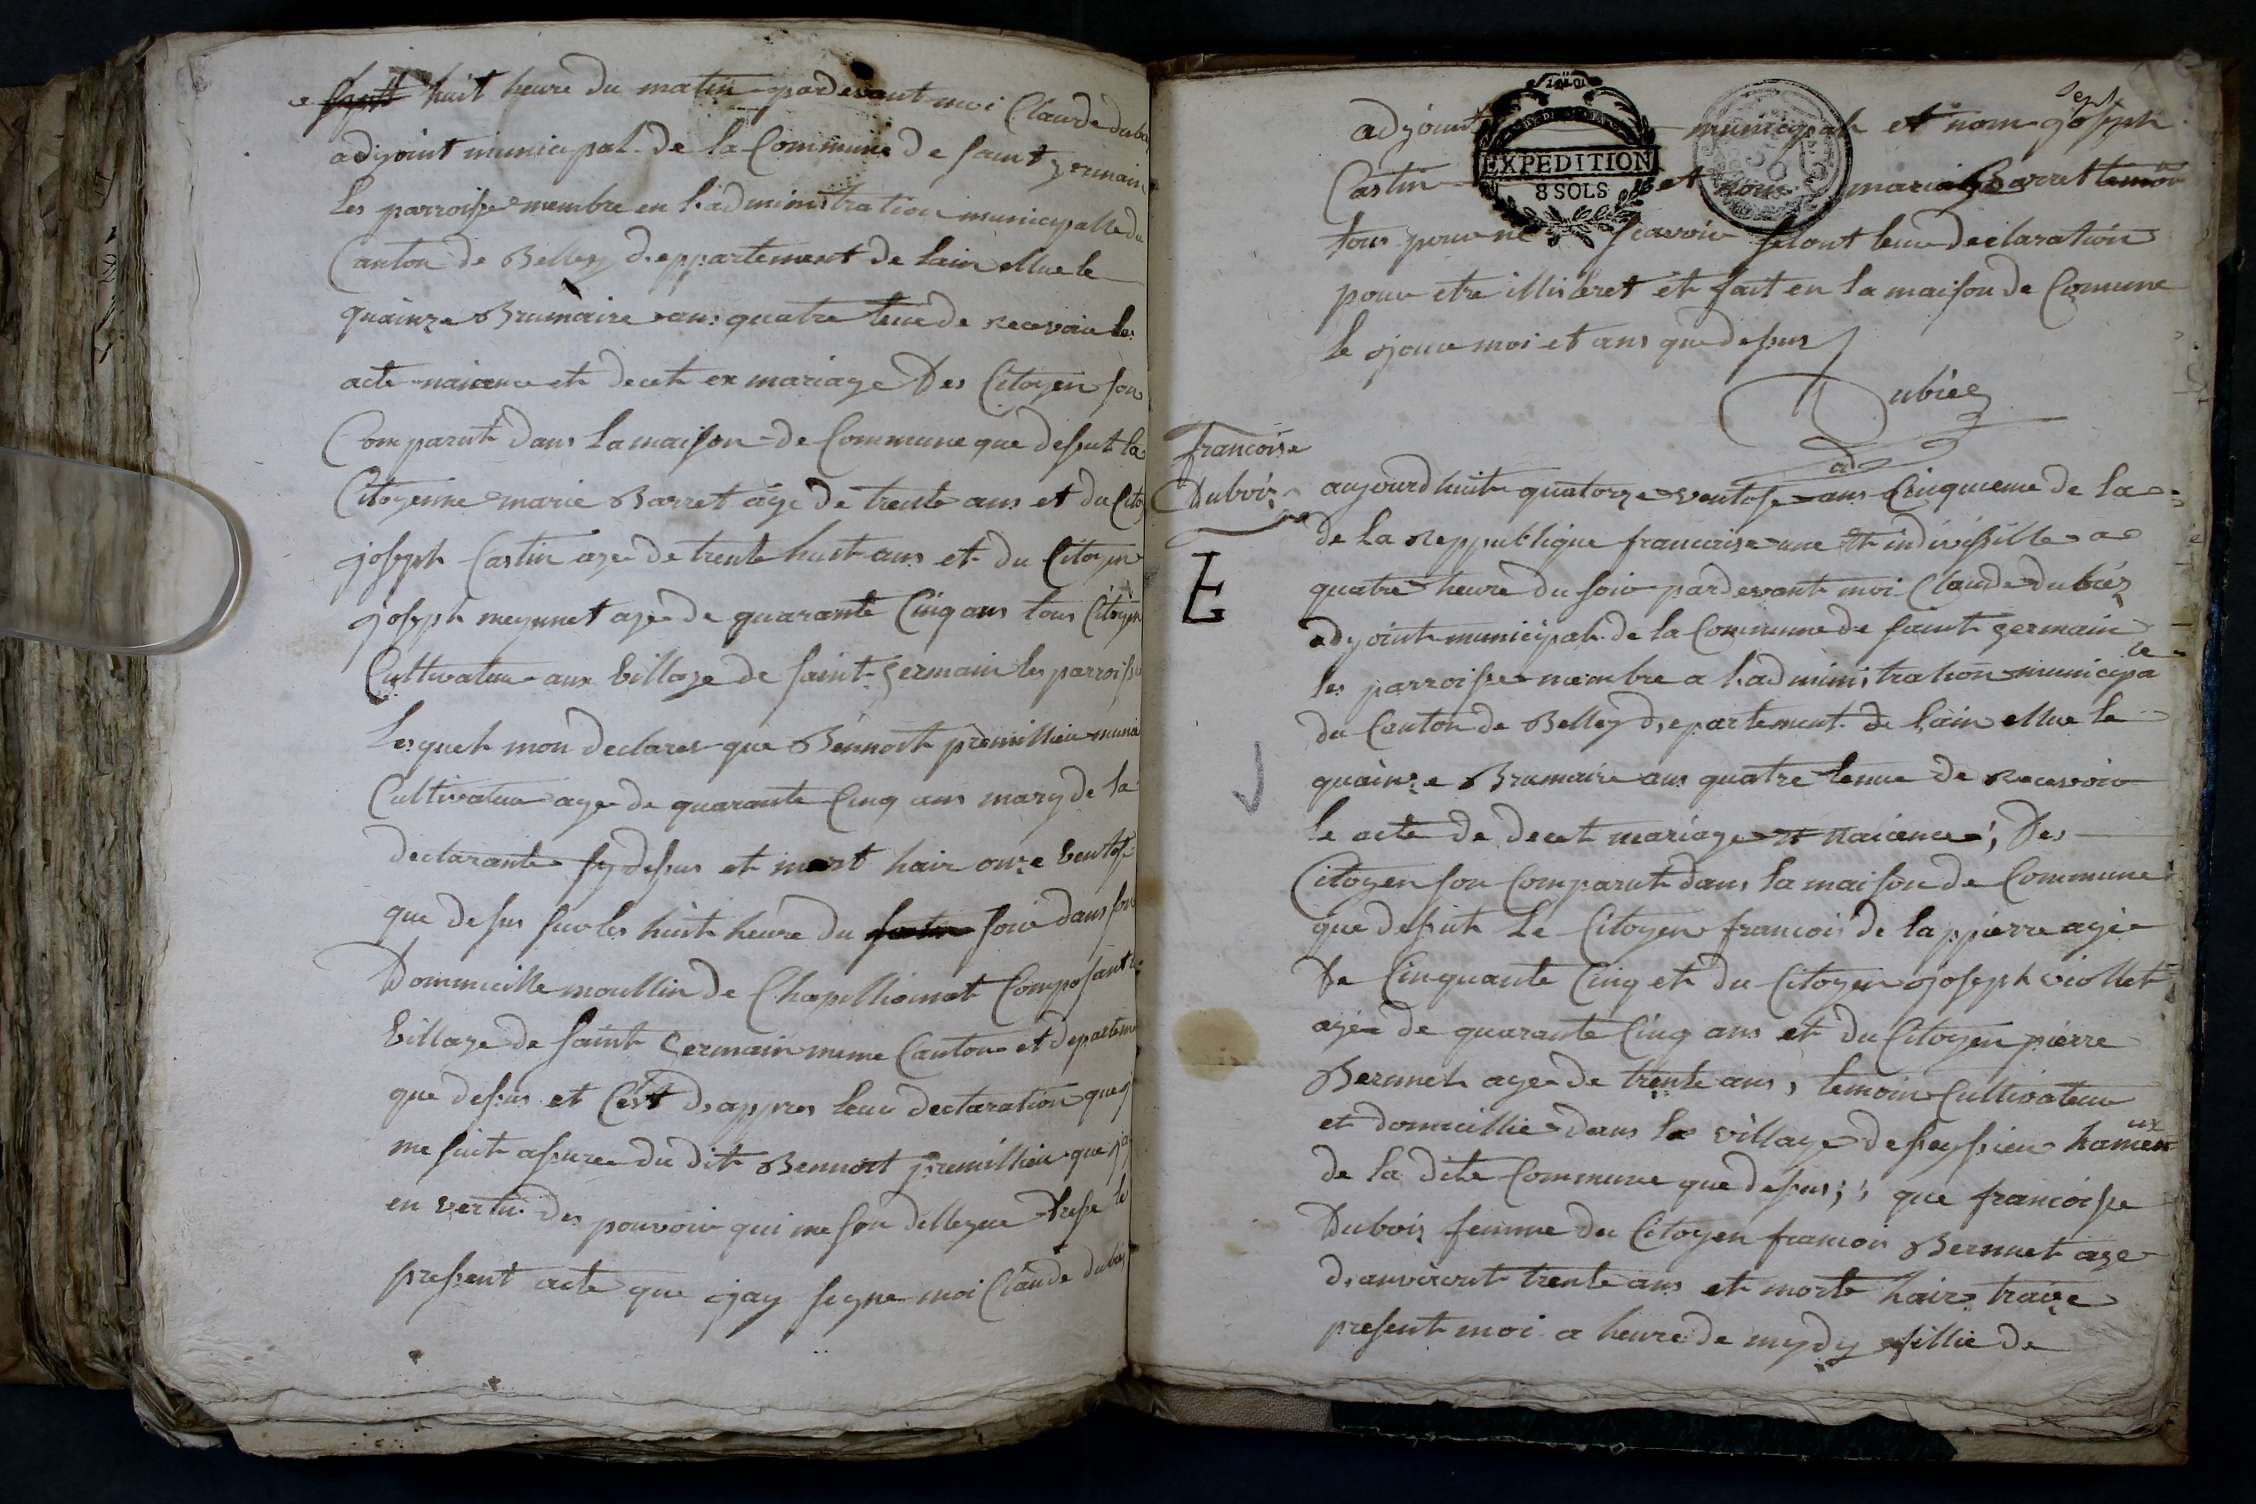 a huit heure du matin pardevant moi Claude dub
adjoint municipal de la Commune de saint germain
les parroisse membre en l'administration municipalle du
Canton de Belley d,eppartement de lain ellue le
quainze Brumaire ans quatre tenue de recevoir les
acte naicence et decet ex mariage Des Citoyen son
Comparut dans la maison de Commune que desut la
Citoyenne marie Barret age de trente ans et du Cito
joseph Castin age de trente huit ans et du Citoyen
joseph meynnet age de quarante Cinq ans tous Citoyen
Cultivateur aux billage de saint germain les parroisse
Lesquels mon declares que Bennoit premillieu
Cultivateur age de quarante Cinq ans mary de la
declarante sydesus et mort hair onze bentose
que desus sur les huit heure du soir dans son
Dommicille moullin de Chapilliomat Composant
billage de saint Germain meme Canton et departem
que desus et C'est d,appres leur declaration que
me suit assuree du dit Bennoit premillieu que
en vertu des pouvoir qui me son dellegue drese le
present acte que jay signe moi Claude dub
Sept
adjoint municipal et nom joseph
EXPEDITION
8 SOLS
Castin et nom marie Barret temoin
tous pour ne scavoir selont leur declaration
pour etre illiteret et fait en la maison de Comune
le jour moi et ans que desus
Dubiez
ad
francoise
Dubois
E
aujourdhuit quatorze ventose ans Cinquieme de la
de la reppublique francaise une et indivisille a
quatre heure du soir pardevant moi Claude dubiez
adjoint municipal de la Commune de saint germain
les parroisse membre a l'administration municipale
du Canton de Belley d,epartement de lain ellue le
quainze Brumaire ans quatre tenue de recevoir
le acte de decet mariage et naicence; Des
Citoyen son Comparut dans la maison de Commune
que desut Le Citoyen francois de lappierre agée
De Cinquante Cinq et du Citoyen joseph viollet
agée de quarante Cinq ans et du Citoyen pierre
Bernnet age de trente ans, temoin Cultivateur
et domicillie dans le village deseyssieu hameux
de la dite Commune que desus;; que francoisse
Dubois femme du Citoyen francois Bernnet age
d,anviront trente ans et morte hair traize
present moi a heure de mydy fillie de